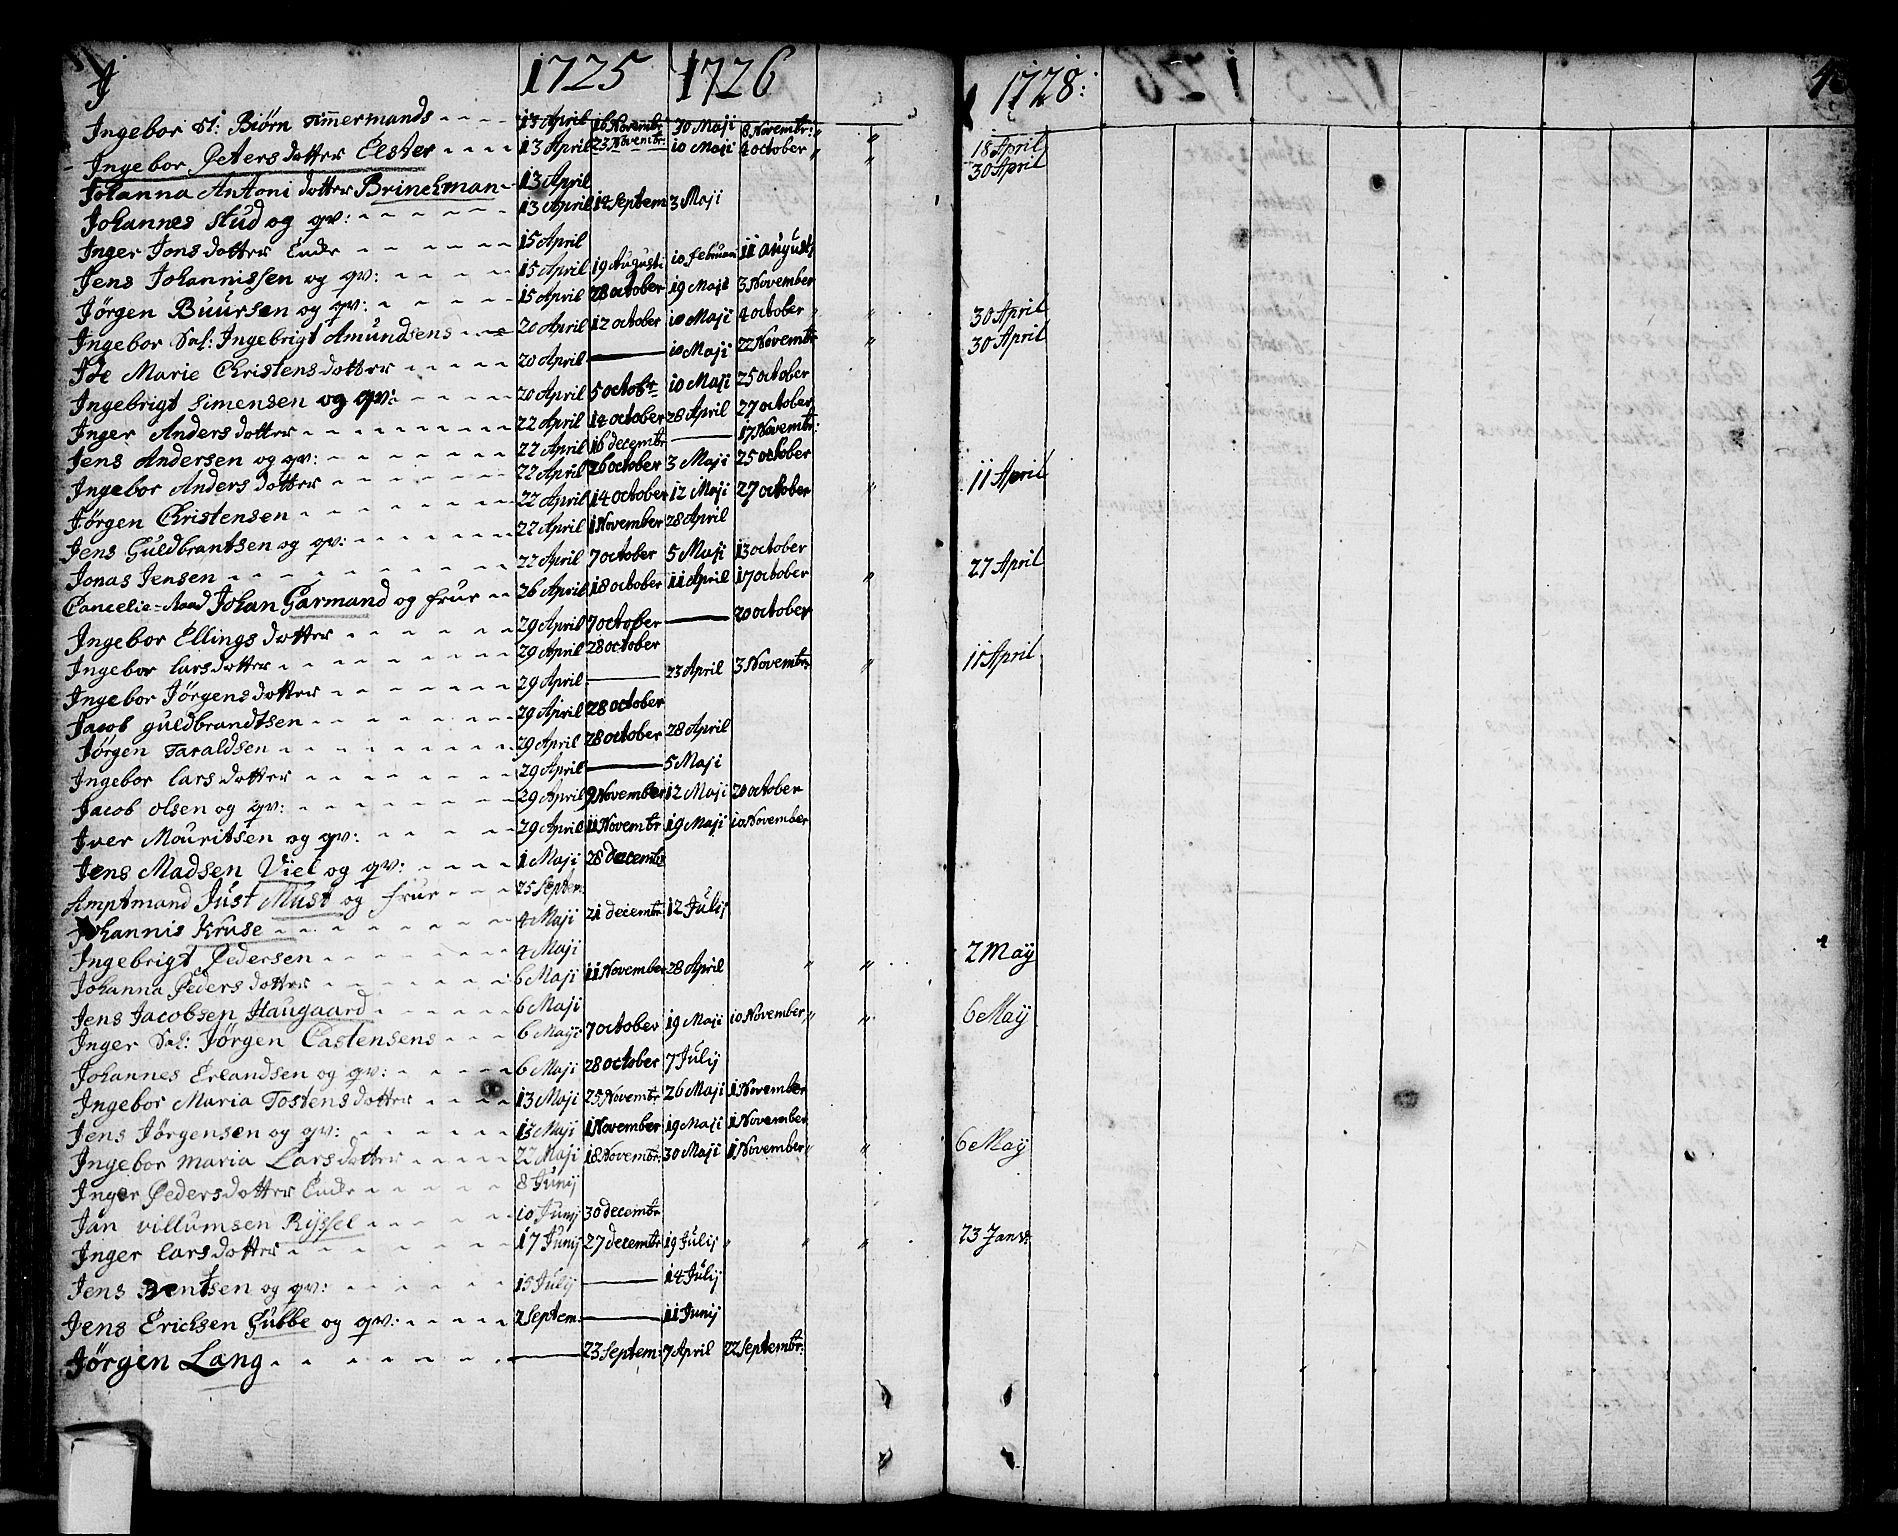 J 1725 1726 1728:
Ingebor Sl: Biørn Timmermands 13 April 16 Novembr 30 Maji 8 Novembr: " " 18 April
Ingebor Peters dotter Elster 13 April 23 Novembr: 10 Maji 4 october " " 30 April
Johanna Antoni dotter Brinchman 13 April
Johannes Stud og qv: 13 April 14 Septem 3 Maji
Inger Jons dotter Encke 15 April
Jens Johannissen og qv: 15 April 19 Augusti 10 Februari 11 augusti
Jørgen Buursen og qv: 15 April 28 october 19 Maji 3 November
Ingebor Sal: Ingebrigt Amundsens 20 April 12 october 10 Maji 4 october " " 30 April
Ide Marie Christens dotter 20 April — 10 Maji 22 Novembr " 30 April
Ingebrigt Simensen og qv: 20 April 5 octobr 10 Maji 25 october
Inger Anders dotter 22 April 14 october 28 April 27 october
Jens Andersen og qv: 22 April 16 decembr — 17 Novembr:
Ingebor Anders dotter 22 April 26 october 3 Maji 25 october
Jørgen Christensen 22 April 14 october 12 Maji 27 october " 11 April
Jens Guldbrantsen og qv: 22 April 1 November 28 April
Jonas Jensen 22 April 7 october 5 Maji 13 october
Cancelie-Raad Johan Garmand og frue 26 April 18 october 11 April 17 october " 27 April
Ingebor Ellings dotter 29 April 7 october — 20 october
Ingebor Lars dotter 29 April 28 october
Ingebor Jørgens dotter 29 April — 23 April 3 Novembr " 11 April
Jacob guldbrandtsen 29 April 28 october
Jørgen Taraldsen 29 April 28 october 28 April
Ingebor Lars dotter 29 April — 5 Maji
Jacob olsen og qv: 29 April 9 November 12 Maji 20 october
Iver Mouritsen og qv: 29 April 11 Novembr 19 Maji 10 November
Jens Madsen Viel og qv: 1 Maji 28 decembr
Amptmand Just Must og frue 25 Septem:
Johannis Kruse 4 Maji 21 decembr: 12 Julij
Ingebrigt Pedersen 4 Maji
Johanna Peders dotter 6 Maji 11 November 28 April " " 2 Maij
Jens Jacobsen Haugaard 6 Maji
Inger Sal: Jørgen Castensens 6 Maji 7 october 19 Maji 10 November " " 6 Maij
Johannes Erlandsen og qv: 6 Maji 28 october 7 Julij
Ingebor Maria Tostens dotter 13 Maji 25 Novembr 26 Maji 1 November
Jens Jørgensen og qv: 13 Maji 1 November 19 Maji 1 November
Ingebor Maria Lars dotter 22 Maji 18 Novembr: 30 Maji 1 November " " 6 Maij
Inger Peders dotter Encke 8 Junij
Jan villumsen Rijssel 10 Junij 30 decembr
Inger Lars dotter 17 Junij 27 decembr 19 Julij " " " 23 Janv:
Jens Bentsen og qv: 15 Julij — 14 Julij
Jens Erichsen Gubbe og qv: 2 Septem: — 11 Junij
Jørgen Lang — 23 Septem: 7 April 22 Septembr: